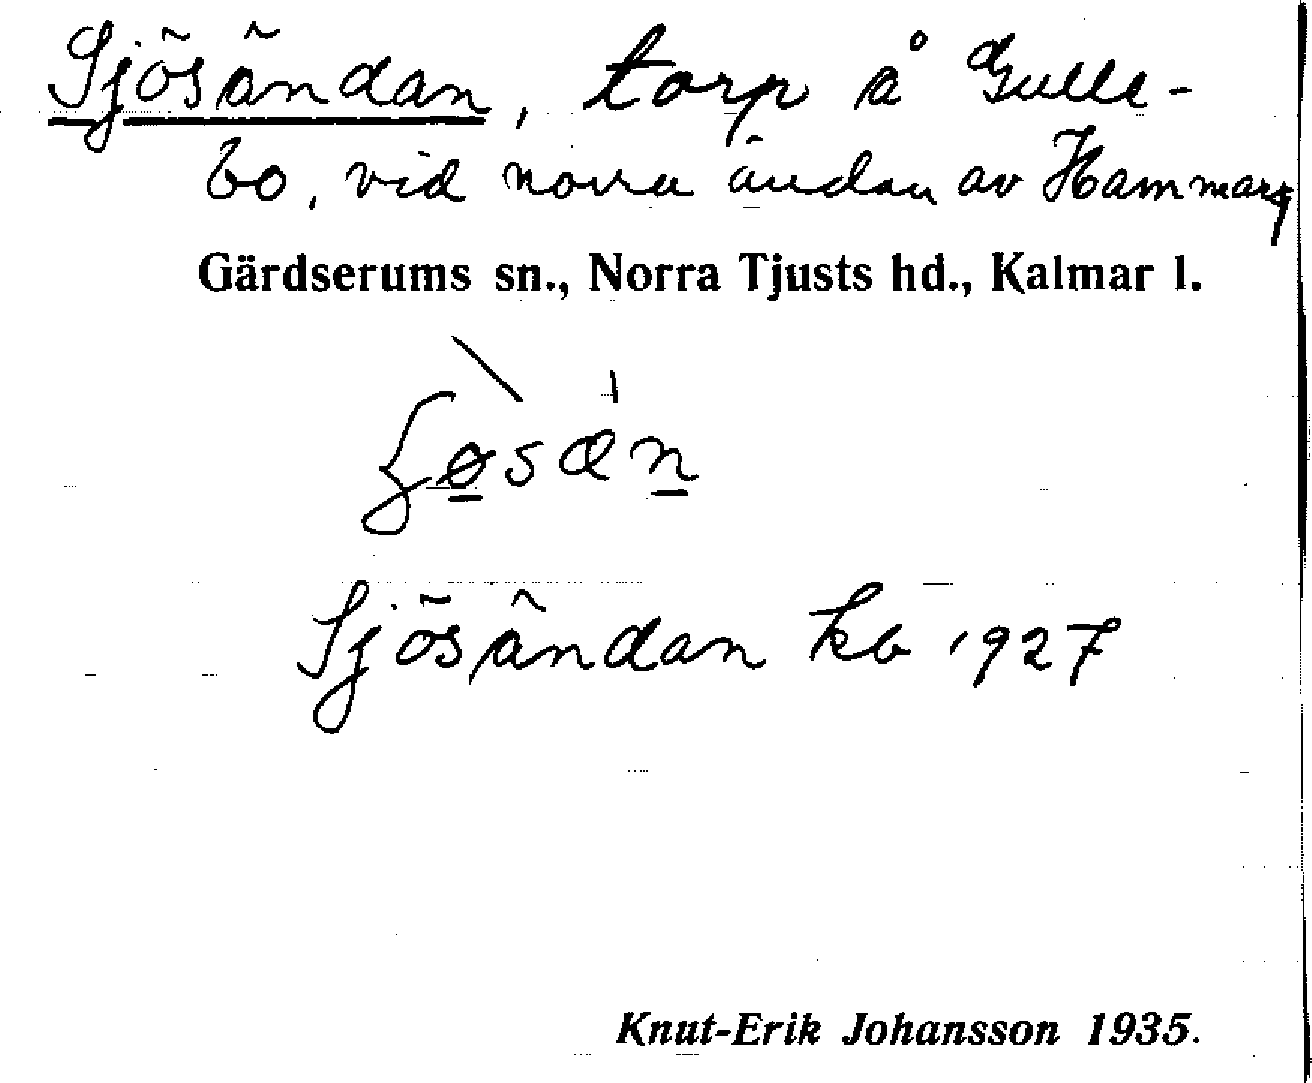 Sjösändan, torp å Gulle-
bo, vid norra ändan av Hammars
Gärdserums sn., Norra Tjusts hd., Kalmar l.
Sjösändan kb 1927
Knut-Erik Johansson 1935.